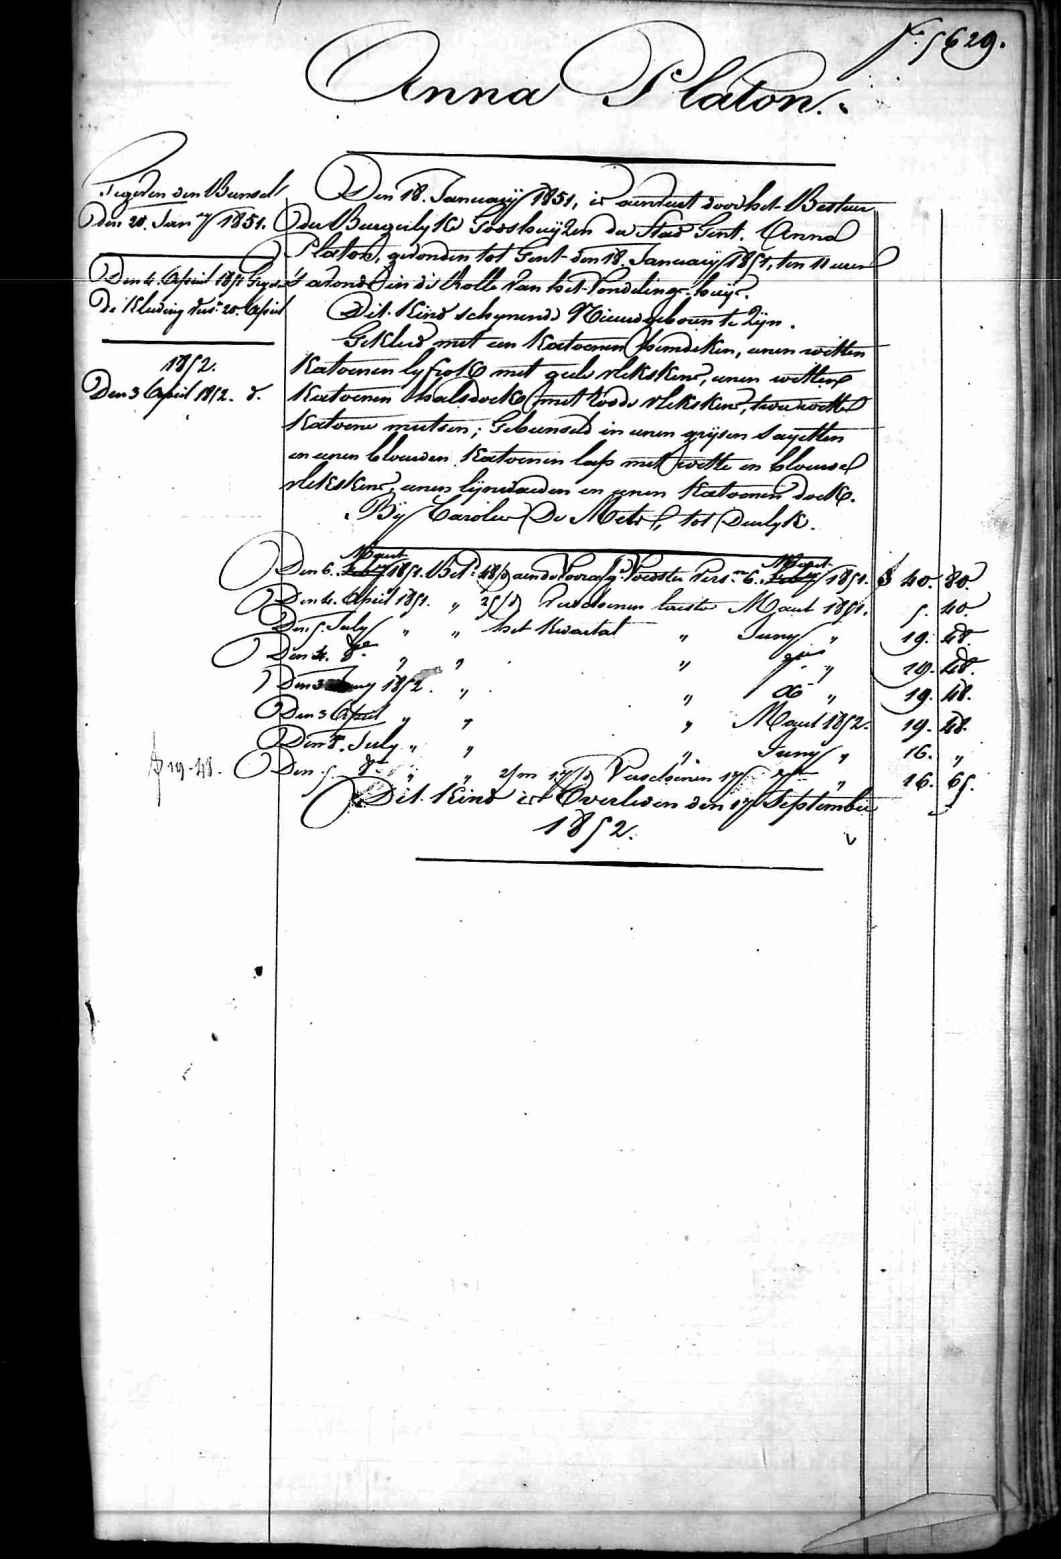 F. 5629.
Anna Platon.
Gegeven den Bunsel
den 20. Jan.ry 1851.
Den 4. April 1851
de Kleeding 20. April
1852.
Den 3 April 1852. d.
Den 18. January 1851, is aenveert door het Bestuer
der Burgerlyke Godshuyzen der Stad Gent. Anna
Platon, gevonden tot Gent den 18. January 1851, ten 11 uren
's avonds in de Rolle van het Vondelinghuys.
Dit Kind schynende Nieuwgeboren te zyn.
Gekleed met een Katoenen hemdeken, eenen witten
Katoenen lyfrok met geele vlekskens, eenen witten
Katoenen halsdoek met roode vlekskens, twee witte
Katoene mutsen; Gebunseld in eenen gryzen sayetten
en eenen blouwen Katoenen lap met witte en blouwe
vlekskens, eenen lynwaeden en eenen Katoenen doek.
By Carolus De Mets, tot Deurlyk.
Maert Maert
Den 6. 1851. Bet. 48/d aen de Voedster Vers. 6. 1851. 40. 80.
Den 4. April 1851. " 25/d Verschenen laeste Maert 1851. 5. 40.
Den 5. July " " het Kwartal " Juny " 19. 48.
Den 4. 8re " " " 7re " 19. 48.
Den 3 1852. " " " 19. 48.
Den 3 April " " " Maert 1852. 19. 48.
Den 8. July " " " Juny " 16. "
ƒ 19-48.
Den 5 8re " " Verschenen 17 7re " 16. 65.
Dit Kind is Overleden den 17 September
1852.